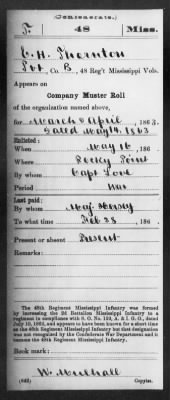 (Confederate.)
T. 48 Miss.
C. H. Thornton
Pvt, Co. B, 48 Reg't Mississippi Vols.
Appears on
Company Muster Roll
of the organization named above,
for March & April, 1863.
Dated May 14, 1863
Enlisted:
When May 16, 186 .
Where Rocky Point
By whom Capt Love
Period War
Last paid:
By whom Maj. Hersey
To what time Feb 28, 186 .
Present or absent Present
Remarks:
The 48th Regiment Mississippi Infantry was formed
by increasing the 2d Battalion Mississippi Infantry to a
regiment in compliance with S. O. No. 
and appears to have been known for a short time
as the 45th Regiment Mississippi Infantry but that designation
was not recognized by the Confederate War Department and it
became the 48th Regiment Mississippi Infantry.
Book mark:
W. Mulhall
(642) Copyist.